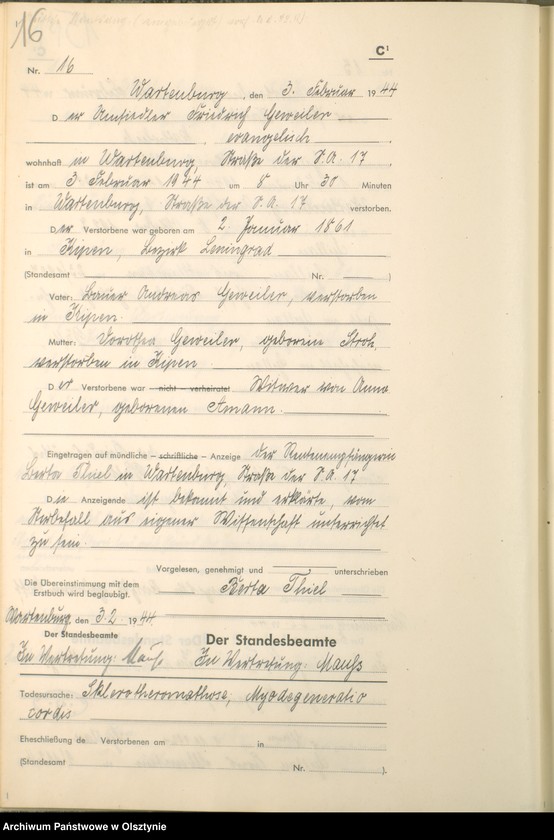 16
C¹
Nr. 16
Wartenburg, den 3. Februar 1944
Der Ansiedler Friedrich Geweiler
, evangelisch,
wohnhaft in Wartenburg, Straße der S.A. 17,
ist am 3. Februar 1944 um 8 Uhr 30 Minuten
in Wartenburg, Straße der S.A. 17 verstorben.
Der Verstorbene war geboren am 2. Januar 1861
in Kipen, Bezirk Leningrad
(Standesamt Nr. )
Vater: Bauer Andreas Geweiler, verstorben
in Kipen.
Mutter: Dorothea Geweiler, geborene Stroh,
verstorben in Kipen.
Der Verstorbene war – nicht – verheiratet Witwer von Anna
Geweiler, geborenen Amann.
Eingetragen auf mündliche – schriftliche – Anzeige der Rentenempfängerin
Berta Thiel in Wartenburg, Straße der S.A. 17
Die Anzeigende ist bekannt und erklärte, vom
Sterbefall aus eigener Wissenschaft unterrichtet
zu sein.
Vorgelesen, genehmigt und unterschrieben
Die Übereinstimmung mit dem
Erstbuch wird beglaubigt.
Berta Thiel
Wartenburg, den 3.2. 1944
Der Standesbeamte
Der Standesbeamte
In Vertretung:
In Vertretung:
Todesursache: Myodegeneratio
cordis
Eheschließung de Verstorbenen am in
(Standesamt Nr. ).
Archiwum Państwowe w Olsztynie